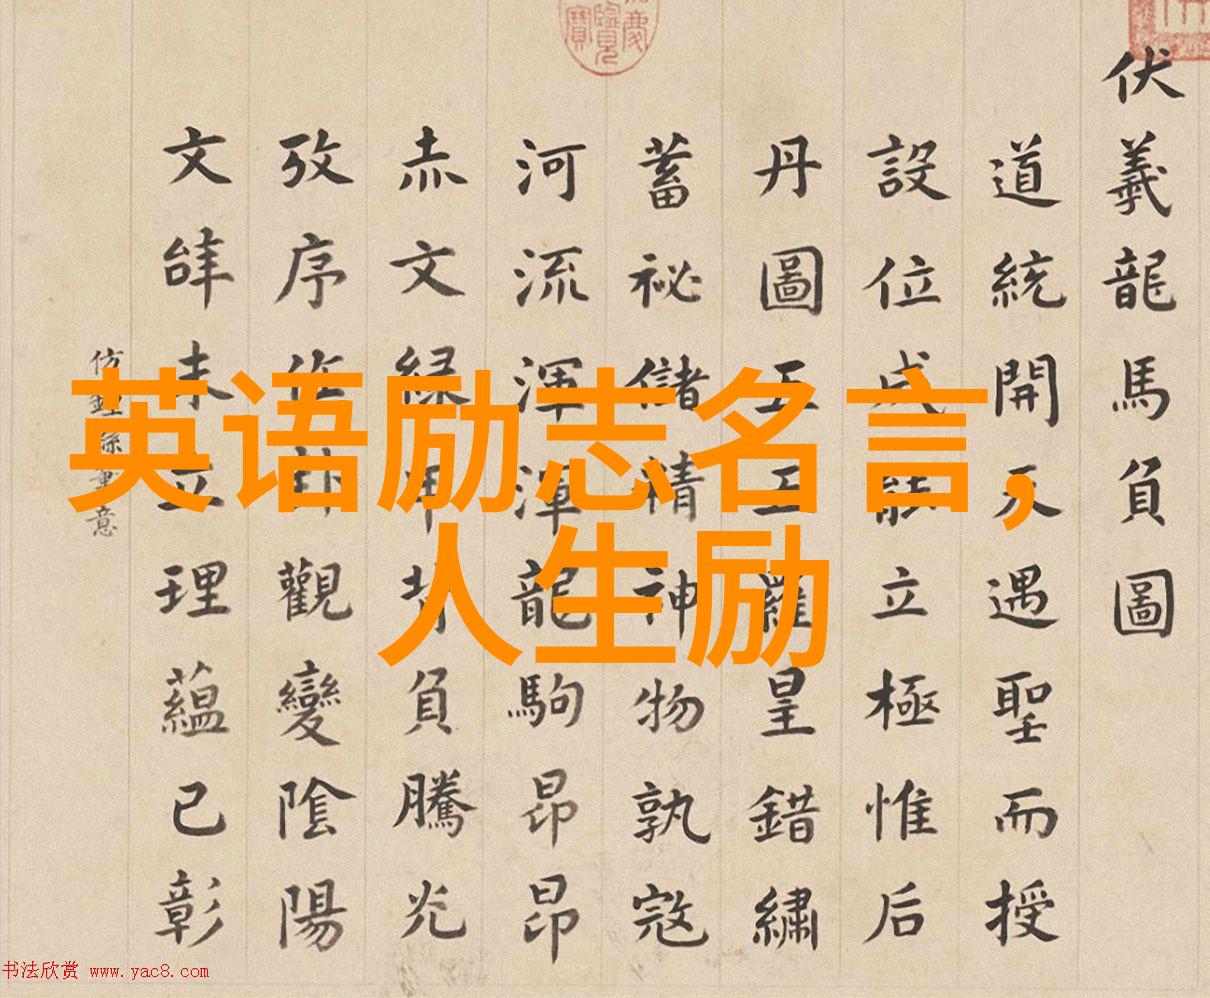 伏羲龍馬負圖
道統開天遇聖而授
設位成能立極惟后
丹圖五三羅皇錯繡
蓄祕儲精神物孰寇
河流渾渾龍駒昂昂
赤文綠甲背負騰光
攷序作卦觀變陰陽
文辞未立理蘊已彰
英语励志名言,
人生励
书法欣赏 www.yac8.com